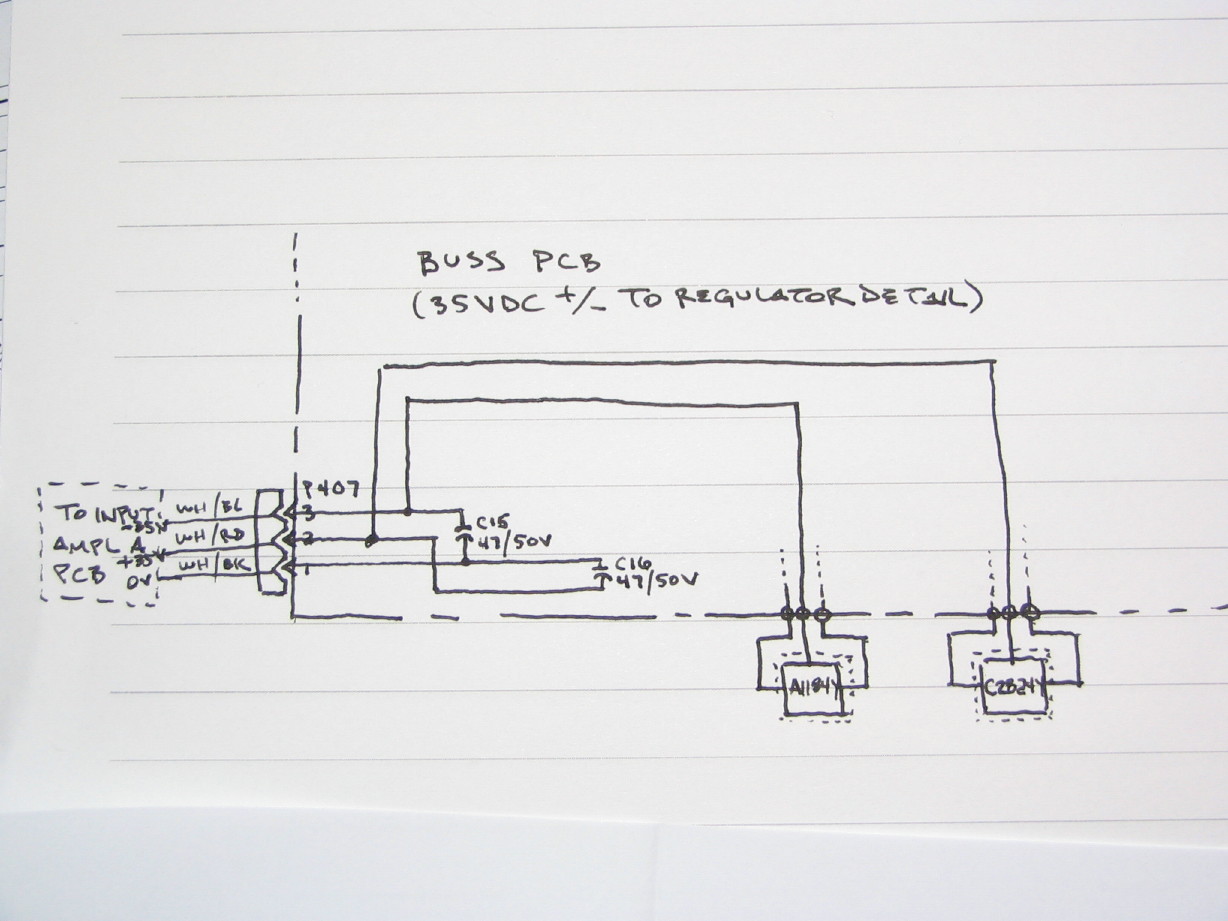 BUSS PCB
(35VDC +/- TO REGULATOR DETAIL)
P407
TO INPUT
-35V
WH/BL
3
AMPL A
+35V
WH/RD
2
PCB
0V
WH/BK
1
C15
47/50V
C16
47/50V
A1184Y
C2824Y